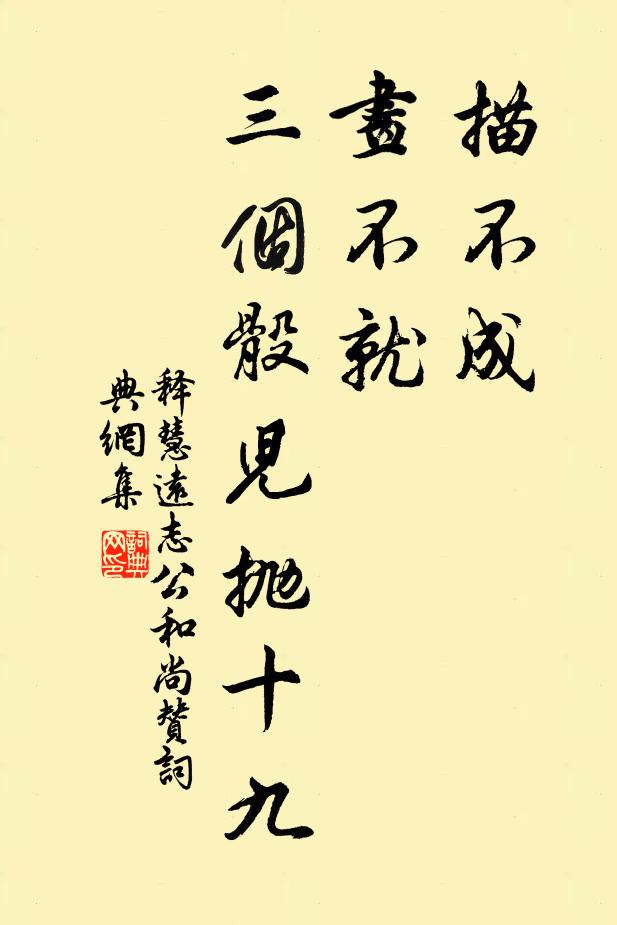 描不成
畫不就
三個骰兒抛十九
释慧遠志公和尚贊詞
典網集
詞典
网印